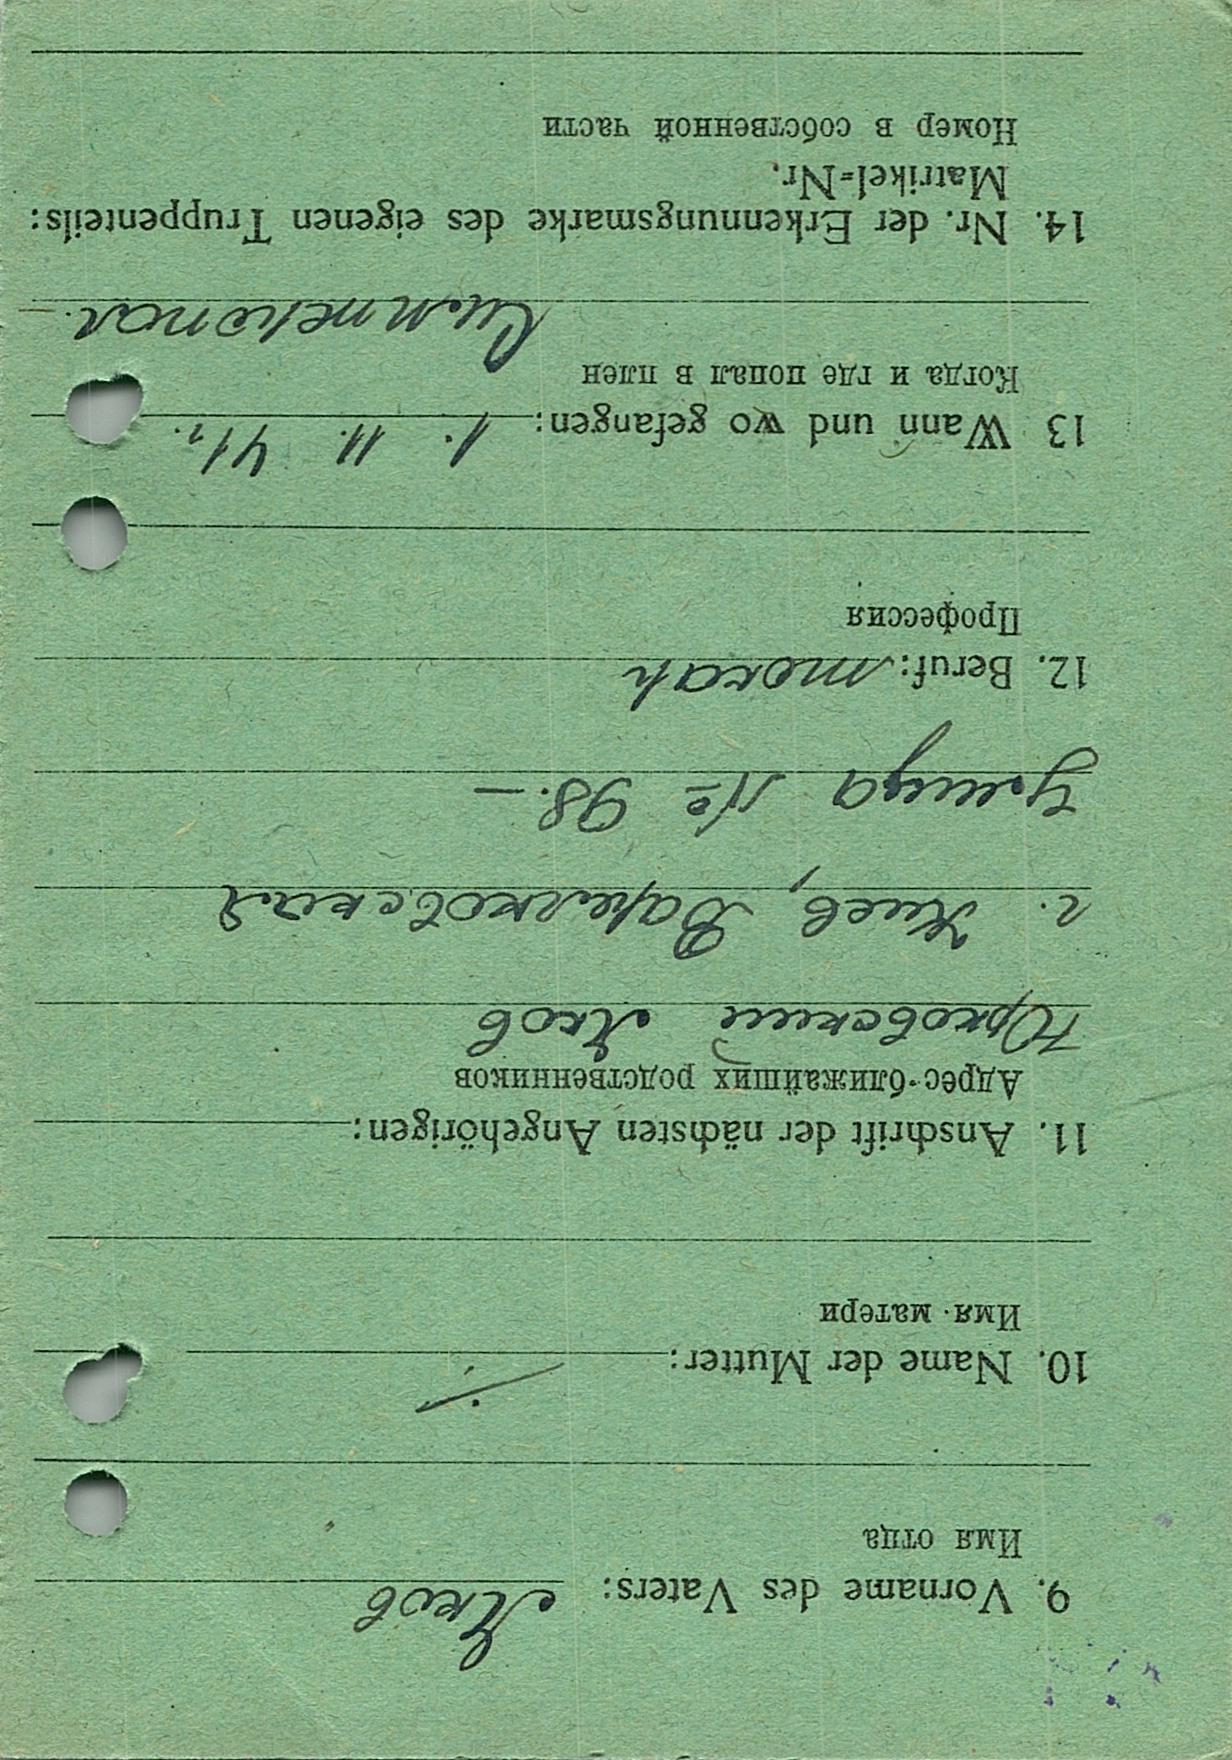 9. Vorname des Vaters: Яков
Имя отца
10. Name der Mutter:
Имя матери
11. Anschrift der nächsten Angehörigen:
Адрес ближайших родственников
Юрковский Яков
г. Киев, Васильковская
Улица № 98.—
12. Beruf: токарь
Профессия
13 Wann und wo gefangen: 1. 11. 41 г.
Когда и где попал в плен
Симферопол.
14. Nr. der Erkennungsmarke des eigenen Truppenteils:
Matrikel=Nr.
Номер в собственной части